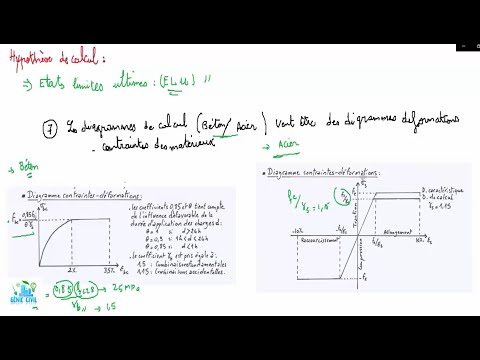 Hypothèse de calcul :
⇒ Etats limites ultimes : (ELU) "
⑦ Les diagrammes de calcul (Béton / Acier) vont être des digrammes deformations
- contraintes des matériaux
→ Béton
→ Acier
▪ Diagramme contraintes-déformations :
0,85 fcj
θ γb
2‰ 3,5‰ εbc
• les coefficients 0,85 et θ tient compte
de l'influence défavorable de la
durée d'application des charges d :
θ = 1 si d > 24h
θ = 0,9 si 1h < d < 24h
θ = 0,85 si d < 1h
• le coefficient γb est pris égale à :
1,5 : Combinaisons fondamentales
1,15 : Combinaisons accidentelles.
= 0,85 fc28 → 25 MPa
γb → 1,5
GÉNIE CIVIL
▪ Diagramme contraintes-déformations :
fe/γs = 1,15
D. caractéristique
D. de calcul
γs = 1,15
Traction
-10‰
Raccourcissement
Allongement
10‰
Compression